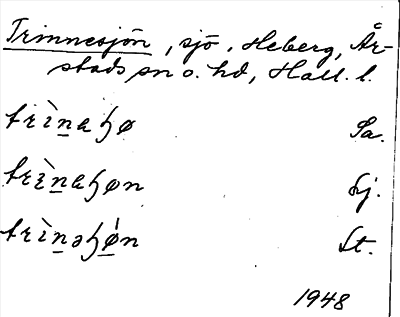 Trinnesjön, sjö, Heberg, År-
stads sn o. hd, Hall. l.
trìn̲aɧø Sa.
trìn̲aɧøn Lj.
trìn̲əɧǿ̲n St.
1948